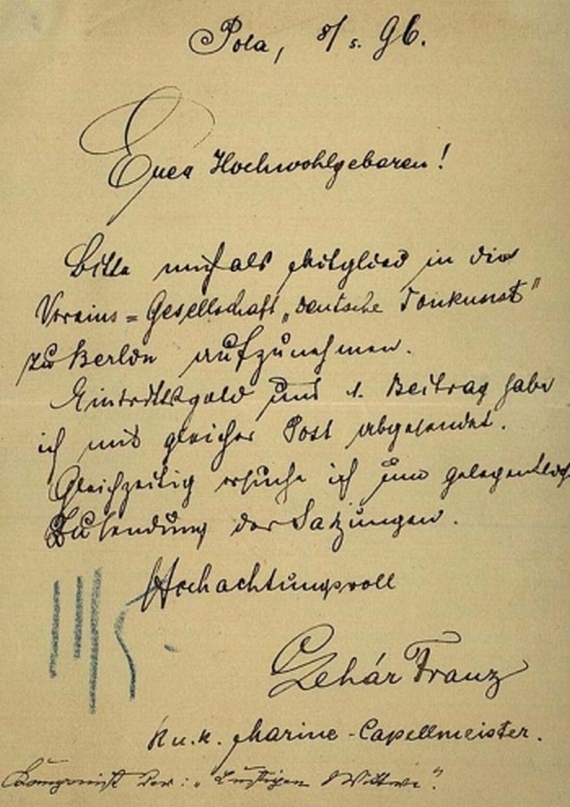 Pola, 8/5. 96.
Euer Hochwohlgeboren!
Bitte mich als Mitglied in die
Vereins=Gesellschaft „deutsche Tonkunst"
zu Berlin aufzunehmen.
Eintrittsgeld und 1. Beitrag habe
ich mit gleicher Post abgesendet.
Gleichzeitig ersuche ich um gelegentlich
Zusendung der Satzungen.
Hochachtungsvoll
Lehár Franz
K u. K. Marine-Capellmeister.
Komponist der: „Lustigen Witwe".